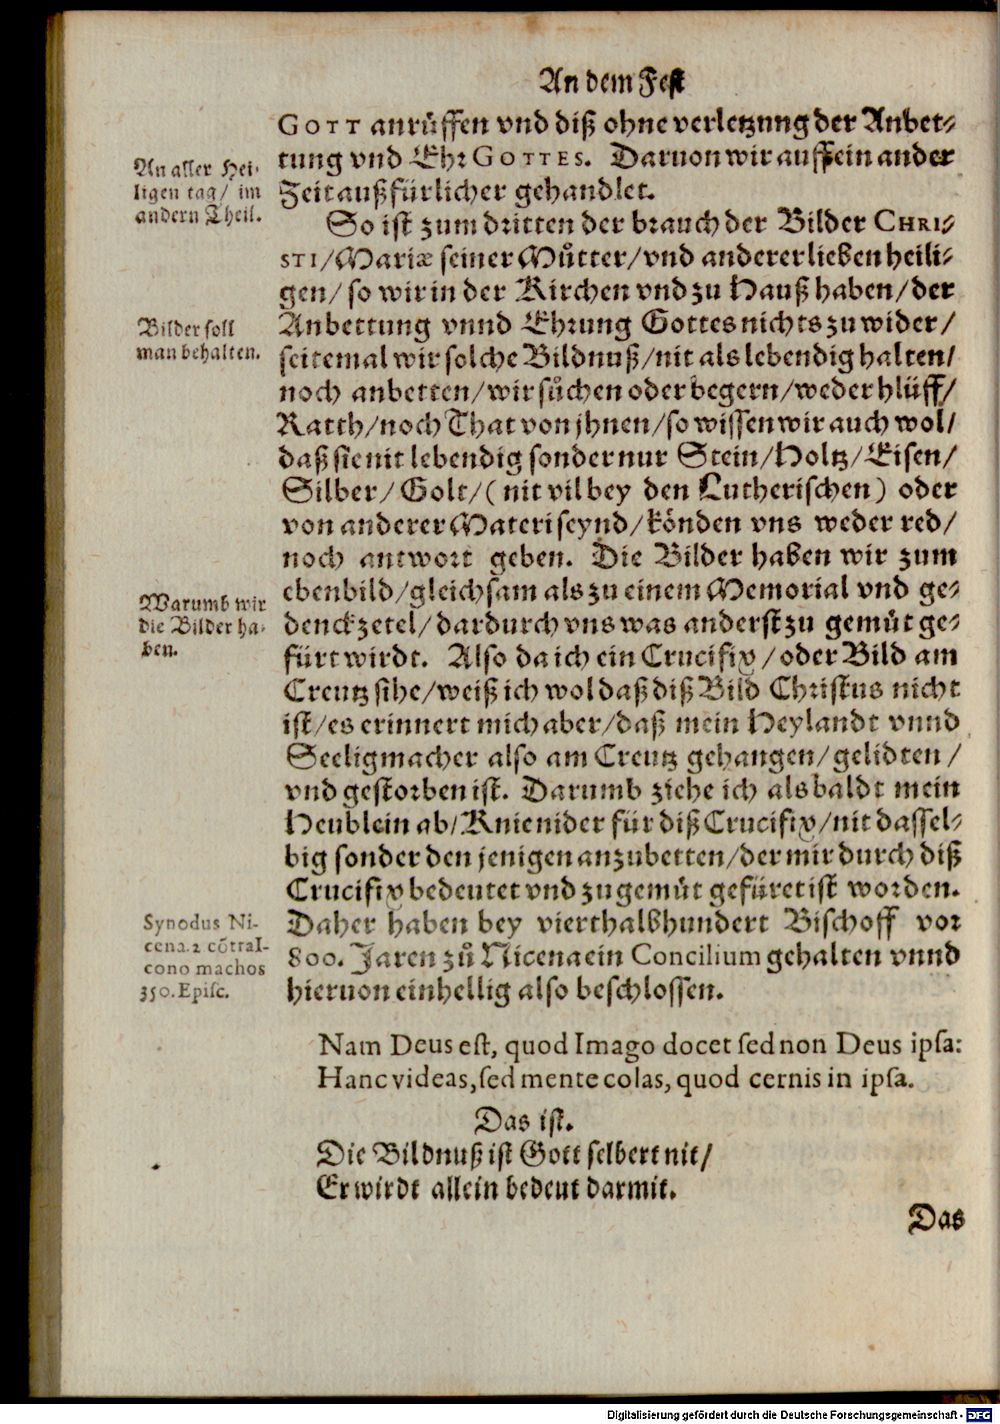 An dem Fest
GOTT anrüffen vnd diß ohne verletzung der Anbet-
tung vnd Ehr GOTTES. Daruon wir auff ein ander
Zeit außfürlicher gehandlet.
An aller Hei-
ligen tag/ im
andern Theil.
So ist zum dritten der brauch der Bilder CHRI-
STI/Mariæ seiner Můtter/vnd anderer lieben heili-
gen/ so wir in der Kirchen vnd zu Hauß haben/der
Anbettung vnnd Ehrung Gottes nichts zu wider/
seitemal wir solche Bildnuß/nit als lebendig halten/
noch anbetten/wir sůchen oder begern/weder hlüff/
Ratth/noch That von jhnen/so wissen wir auch wol/
daß sie nit lebendig sonder nur Stein/Holtz/Eisen/
Silber/Golt/(nit vil bey den Lutherischen) oder
von anderer Materi seynd/könden vns weder red/
noch antwort geben. Die Bilder haben wir zum
ebenbild/gleichsam als zu einem Memorial vnd ge-
denckzetel/dardurch vns was anderst zu gemüt ge-
fürt wirdt. Also da ich ein Crucifix/oder Bild am
Creutz sihe/weiß ich wol daß diß Bild Christus nicht
ist/es erinnert mich aber/daß mein Heylandt vnnd
Seeligmacher also am Creutz gehangen/gelidten/
vnd gestorben ist. Darumb ziehe ich als baldt mein
Heublein ab/Knie nider für diß Crucifix/nit dassel-
big sonder den jenigen anzubetten/der mir durch diß
Crucifix bedeutet vnd zu gemüt gefüret ist worden.
Daher haben bey vierthalbhundert Bischoff vor
800. Jaren zů Nicena ein Concilium gehalten vnnd
hieruon einhellig also beschlossen.
Bilder soll
man behalten.
Warumb wir
die Bilder ha-
ben.
Synodus Ni-
cena. 2 cõtra I-
cono machos
350. Episc.
Nam Deus est, quod Imago docet sed non Deus ipsa:
Hanc videas, sed mente colas, quod cernis in ipsa.
Das ist.
Die Bildnuß ist Gott selbert nit/
Er wirdt allein bedeut darmit.
Das
Digitalisierung gefördert durch die Deutsche Forschungsgemeinschaft - DFG